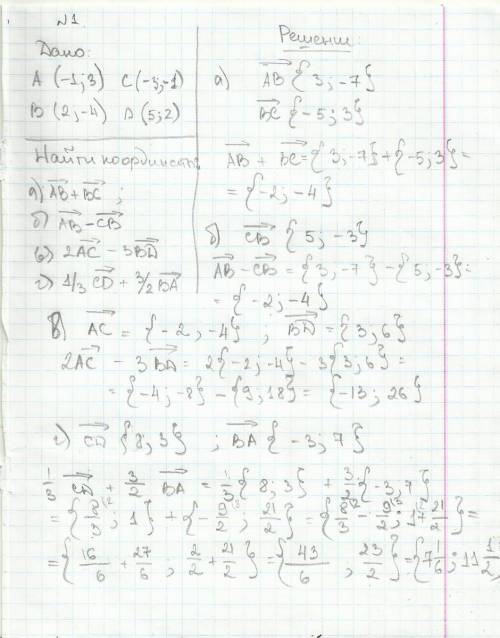 №1
Дано:
A (-1; 3) C (-3; -1)
B (2; -4) D (5; 2)
Найти координаты:
а) AB + BC ;
б) AB - CB
в) 2AC - 3BD
г) 1/3 CD + 3/2 BA
Решение:
а) AB {3; -7}
BC {-5; 3}
AB + BC = {3; -7} + {-5; 3} =
= {-2; -4}
б) CB {5; -3}
AB - CB = {3; -7} - {5; -3} =
= {-2; -4}
в) AC = {-2; -4} ; BD = {3; 6}
2AC - 3BD = 2{-2; -4} - 3{3; 6} =
= {-4; -8} - {9; 18} = {-13; 26}
г) CD {8; 3} ; BA {-3; 7}
1/3 CD + 3/2 BA = 1/3 {8; 3} + 3/2 {-3; 7}
= {8/3; 1} + {-9/2; 21/2} = {8/3 - 9/2; 1 + 21/2} =
= {16/6 + 27/6; 2/2 + 21/2} = {43/6; 23/2} = {7 1/6; 11 1/2